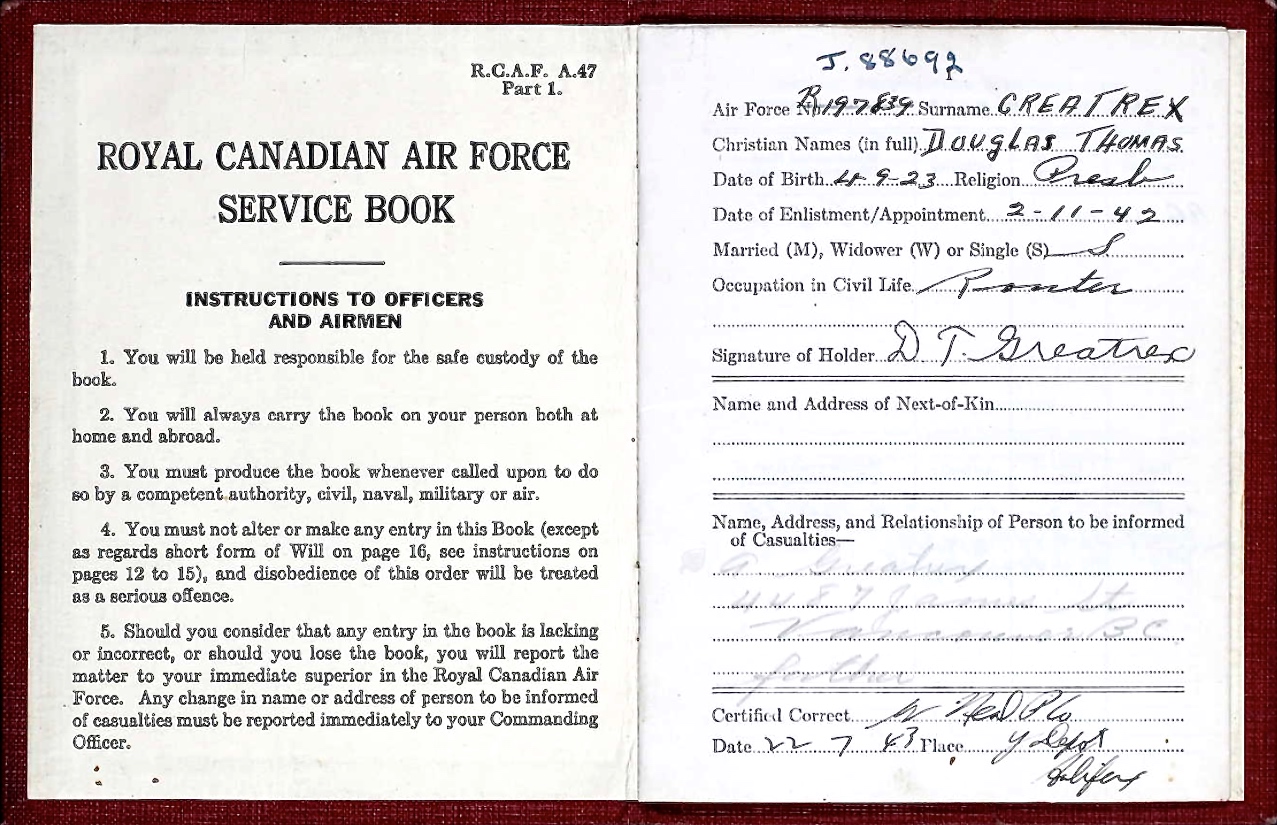 R.C.A.F. A.47
Part 1.
ROYAL CANADIAN AIR FORCE
SERVICE BOOK
INSTRUCTIONS TO OFFICERS
AND AIRMEN
1. You will be held responsible for the safe custody of the
book.
2. You will always carry the book on your person both at
home and abroad.
3. You must produce the book whenever called upon to do
so by a competent authority, civil, naval, military or air.
4. You must not alter or make any entry in this Book (except
as regards short form of Will on page 16, see instructions on
pages 12 to 15), and disobedience of this order will be treated
as a serious offence.
5. Should you consider that any entry in the book is lacking
or incorrect, or should you lose the book, you will report the
matter to your immediate superior in the Royal Canadian Air
Force. Any change in name or address of person to be informed
of casualties must be reported immediately to your Commanding
Officer.
J. 88692
Air Force No. R197839 Surname GREATREX
Christian Names (in full) DOUGLAS THOMAS
Date of Birth 4-9-23 Religion Presb
Date of Enlistment/Appointment 2-11-42
Married (M), Widower (W) or Single (S) S
Occupation in Civil Life
Signature of Holder D T. Greatrex
Name and Address of Next-of-Kin
Name, Address, and Relationship of Person to be informed
of Casualties—
A Greatrex
4487 James St
Vancouver BC
father
Certified Correct
Date 22 7 43 Place Y Depot
Halifax